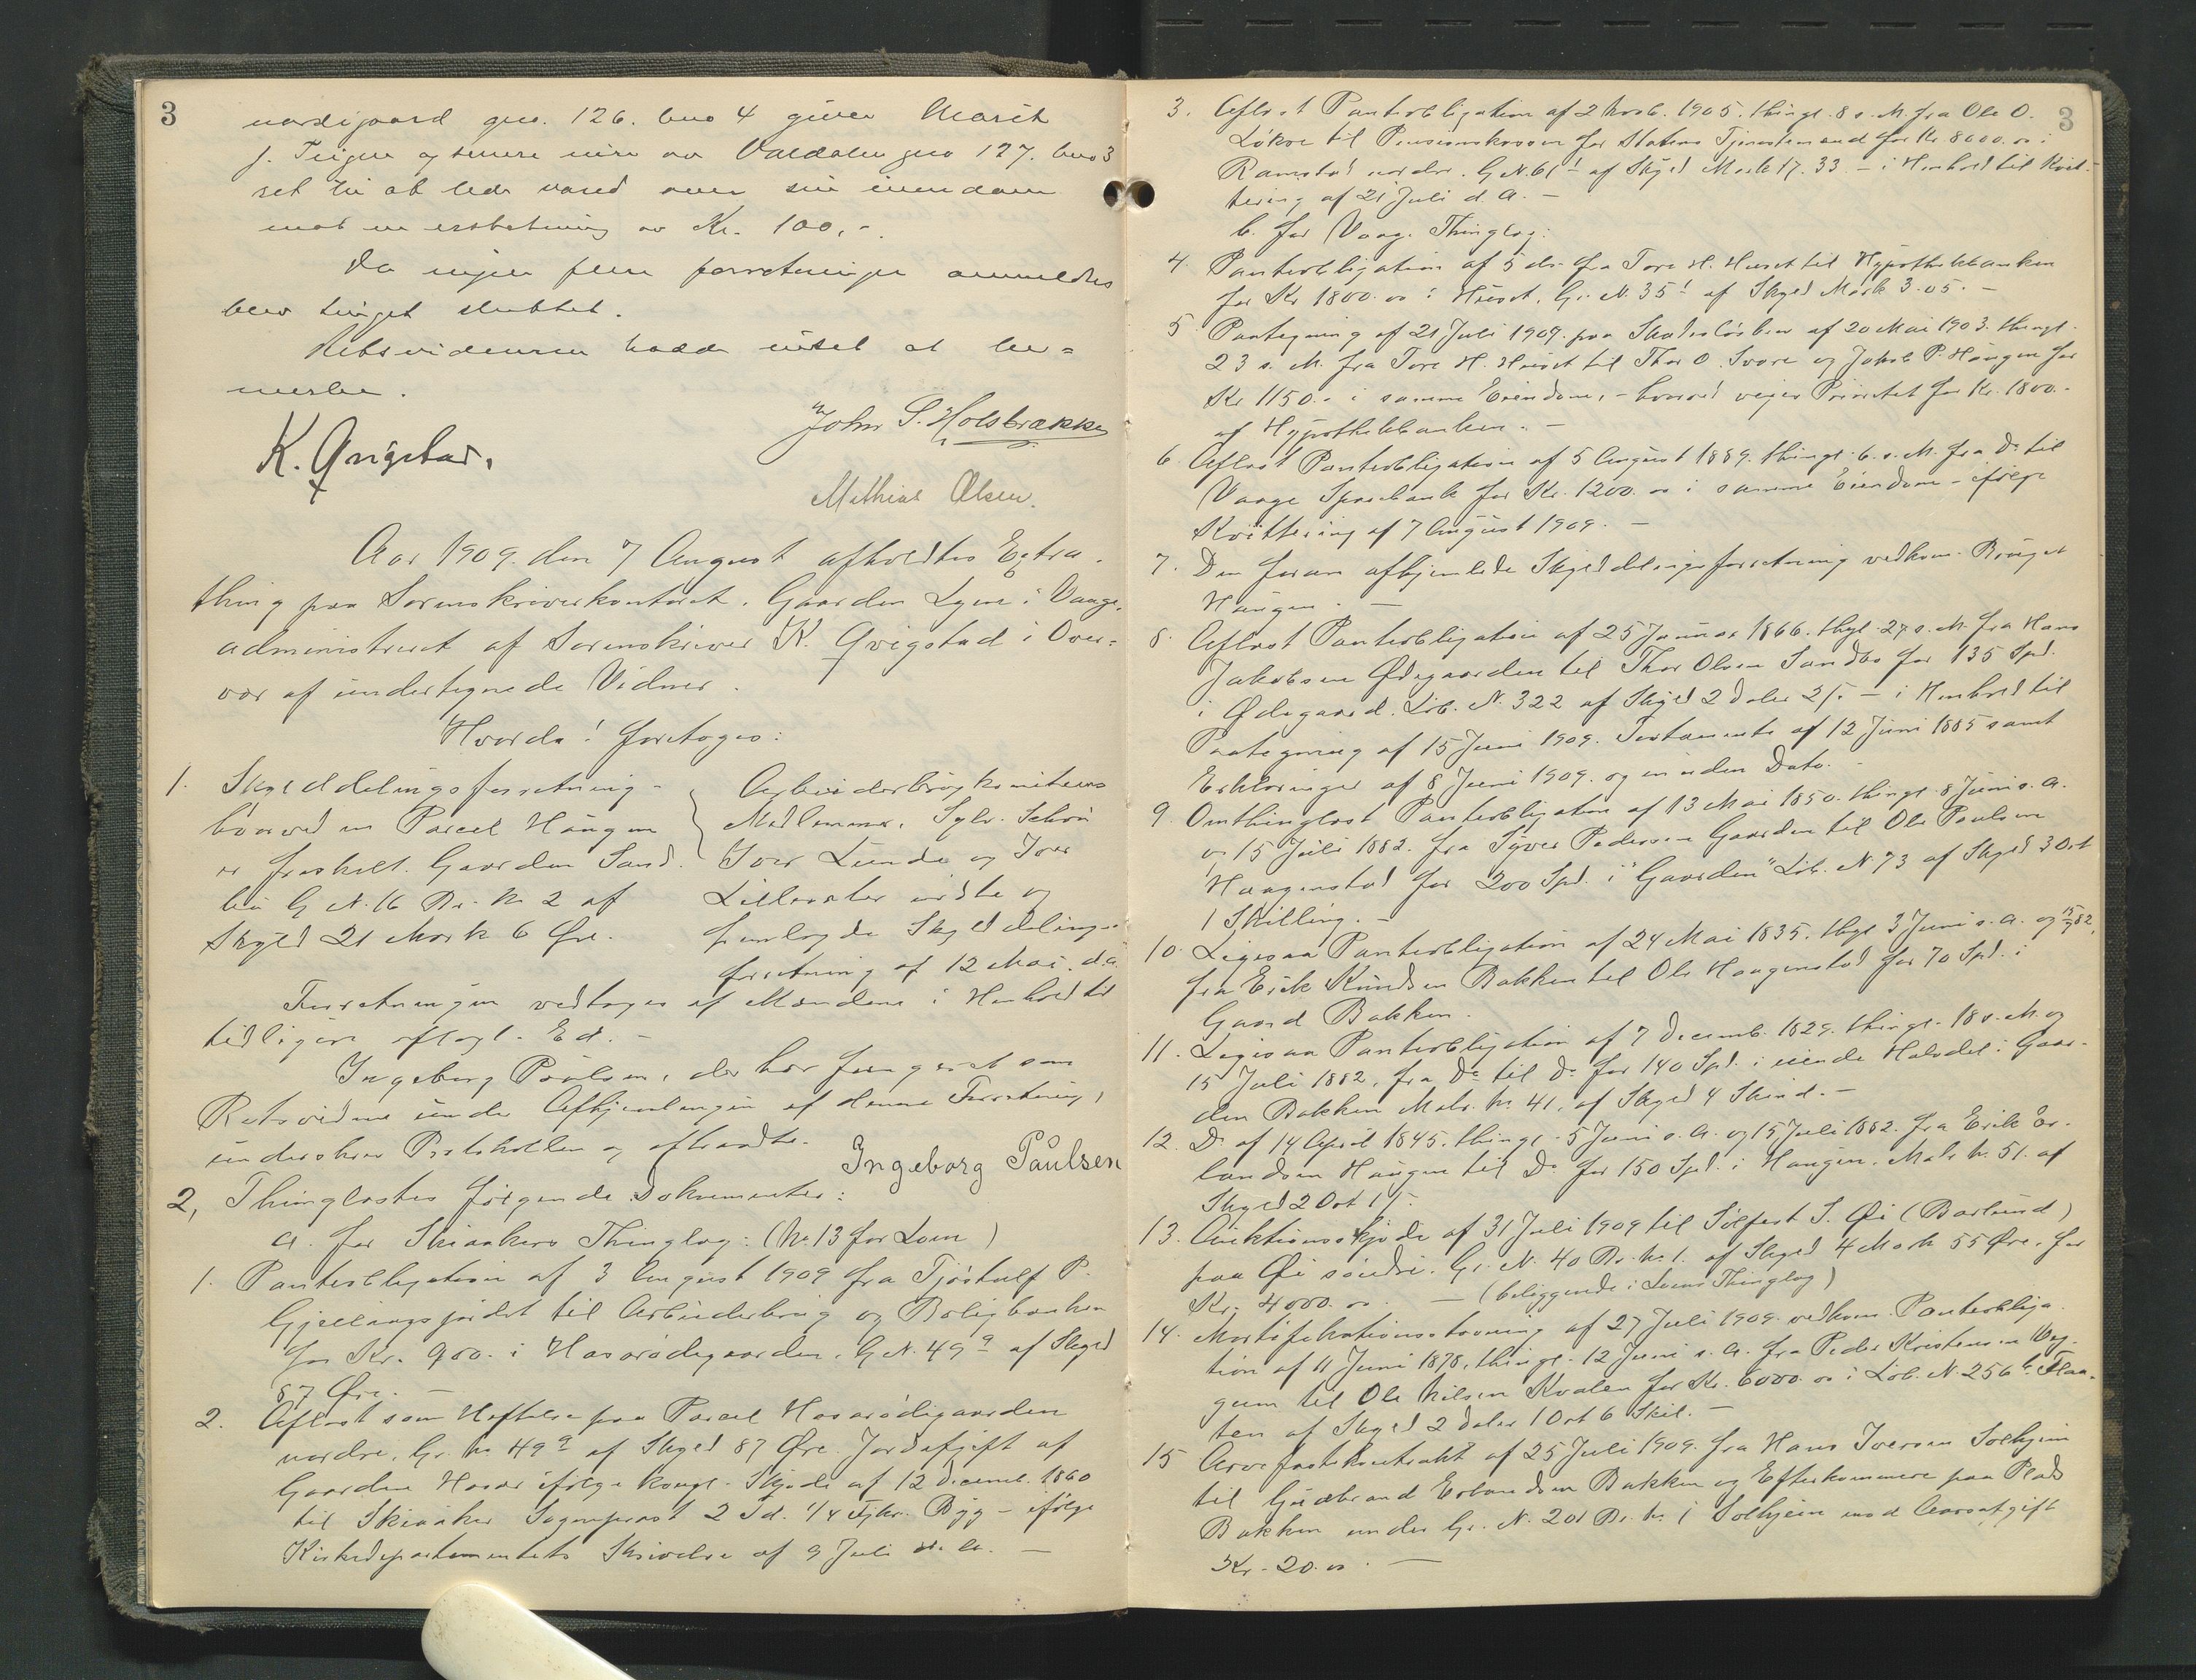 3
nordigaard gno. 126. bno 4 giver Marit
J. Teigen og senere eiere av Valdalen gno 127. bno 3
ret til at lede vand over sin eiendom
mot en erstatning av Kr. 100,-.
Da ingen flere forretninger anmeldtes
blev tinget sluttet.
Retsvidnerne hadde intet at be=
merke.
K. Qvigstad.
John S. Holsbrække
Mathias Olsen.
Aar 1909. den 7 August afholdtes Extra-
thing paa Sorenskriverkontoret. Gaarden Lyen i Vaage,
administreret af Sorenskriver K. Qvigstad i Over=
vær af undertegnede Vidner.
Hvorda! foretoges:
1. Skylddelingsforretning -
hvorved en Parcel Haugen
er fraskilt. Gaarden Sand-
bu G. N. 16 Br. No 2 af
Skyld 21 Mark 6 Øre.
Arbeiderbrugkomiteens
Medlemmer, Sylv. Schou
Iver Lunde og Iver
Lilleværker indkr og
fremlagde Skylddelings-
forretning af 12 Mai d.a.
Forretningen vedtoges af Mændene i Henhold til
tidligere aflagt Ed. -
Ingeborg Paulsen, der har fungeret som
Retsvidne under Afhjemlingen af denne Forretning,
underskrev Protokollen og aftraadte.
Ingeborg Paulsen
2, Thinglæstes følgende Dokumenter:
a. for Skiaakers Thinglag: (No. 13 for Lom)
1. Panteobligation af 3 August 1909 fra Tjøstulf P.
Gjeilangsjordet til Arbeiderbrug og Boligbanken
for Kr. 900. i Hasarødegaarden. G. N. 49 9 af Skyld
87 Øre. -
2. Aflæst som Heftelse paa Parcel Hasarødigaarden
nordre, Gr. No 49 9 af Skyld 87 Øre. Jordafgift af
Gaarden Hasar ifølge kongl. Skjøde af 12 Decemb. 1860
til Skiaaker Sogneprest 2 Td. 1/4 Fjkr. Byg - ifølge
Kirkedepartementets Skrivelse af 9 Juli d. A. -
3
3. Aflæst Panteobligation af 2 Novb. 1905. thingl. 8 s. M. fra Ole O.
Løkre til Pensionskassen for Statens Tjenestemænd for Kr 8000. 00 i
Ramstad nordre. G. N. 61 1 af Skyld Mark 17.33 - i Henhold til Kvit-
tering af 21 Juli d. A. -
b. for Vaage Thinglag:
4. Panteobligation af 5 ds. fra Tore H. Huset til Hypothekbanken
for Kr 1800. 00 i Huset, Gr. N. 35 1 af Skyld Mark 3.05. -
5 Paategning af 21 Juli 1909. paa Skadesløsbrev af 20 Mai 1903. thingl.
23 s. M. fra Tore H. Huset til Thor O. Svare og Jakob P. Haugen for
Kr 1150.- i samme Eiendom, - hvorved viges Prioritet for Kr. 1800.-
af Hypothekbanken. -
6. Aflæst Panteobligation af 5 August 1889. thingl. 6. s. M. fra Do til
Vaage Sparebank for Kr. 1200. 00 i samme Eiendom - ifølge
Kvittering af 7 August 1909. -
7. Den foran afhjemlede Skylddelingsforretning vedkom. Bruget
Haugen. -
8. Aflæst Panteobligation af 25 Januar 1866. thgl. 27 s. M. fra Hans
Jakobsen Ødegaarden til Thor Olsen Sandbo for 135 Spd.
i Ødegaard. Løb. N. 322 af Skyld 2 Daler 2 ſ. - i Henhold til
Paategning af 15 Juni 1909. Testamente af 12 Juni 1885 samt
Erklæringer af 8 Juni 1909. og en uden Dato. -
9. Omthinglæst Panteobligation af 13 Mai 1850. thingl. 8 Juni s. A.
og 15 Juli 1882. fra Syver Pedersen Gaarden til Ole Paulsen
Haagenstad for 200 Spd. i "Gaarden" Løb. N 73 af Skyld 3 Ort
1 Skilling. -
10. Ligesaa Panteobligation af 24 Mai 1835. thgl 3 Juni s. A. og 15/7 82,
fra Erik Knudsen Bakken til Ole Haagenstad for 70 Spd. i
Gaard Bakken.
11. Ligesaa Panteobligation af 7 Decemb. 1829. thingl. 18 s. M. og
15 Juli 1882, fra Do til Do for 140 Spd. i eiende Halvdel i Gaar-
den Bakken Matr. No 41, af Skyld 4 Skind. -
12. Do af 14 April 1845. thingl. 5 Juni s. A. og 15 Juli 1882. fra Erik Er-
landsen Haugen til Do for 150 Spd. i Haugen. Matr No. 51. af
Skyld 2 Ort 1 ſ.
13. Auktionsskjøde af 31 Juli 1909 til Sølfest S. Øi (Barlund)
paa Øi søndre. Gr. N. 40 Br. No 1. af Skyld 4 Mark 55 Øre, for
Kr. 4000. 00. - (beliggende i Loms Thinglag)
14. Mortifikationsdoming af 27 Juli 1909. vedkom. Panteobliga-
tion af 11 Juni 1878, thingl. 12 Juni s. A. fra Peder Kristensen Hag-
gum til Ole Nilsen Kvalen for Kr. 6000. 00 i Løb. N. 256 b Slaa-
ten af Skyld 2 Daler 1 Ort 6 Skil. -
15 Arvefæstekontrakt af 25 Juli 1909. fra Hans Iversen Solhjem
til Gudbrand Erlandsen Bakken og Efterkommere paa Plads
Bakken under Gr. N. 201 Br. No 1 Solhjem mod Aarsafgift
Kr. 20. 00. -